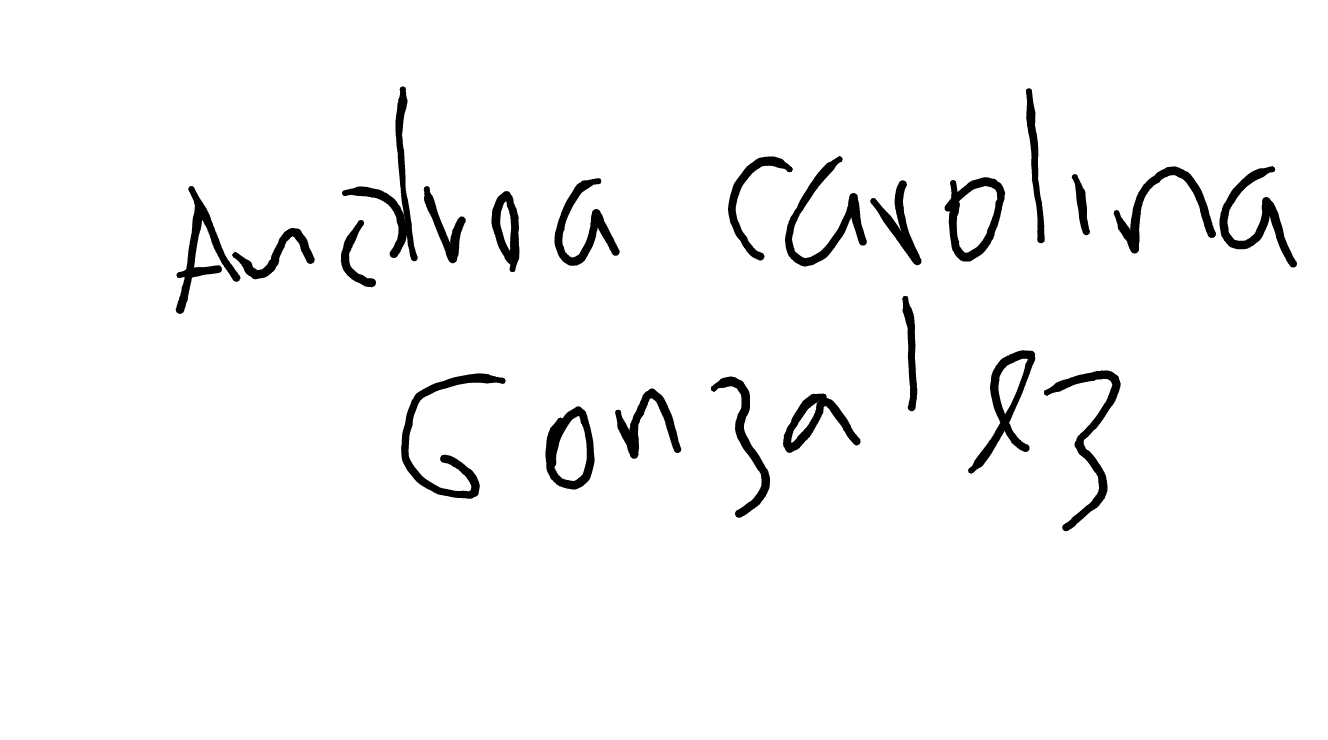 Andrea carolina
Gonzalez